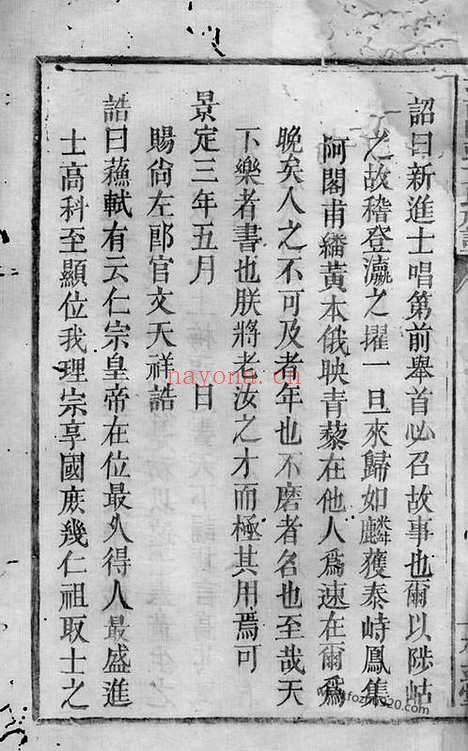 詔曰新進士唱第前舉首必召故事也爾以陟岵
之故稽登瀛之擢一旦來歸如麟獲泰畤鳳集
阿閣甫繙黃本俄映青藜在他人爲速在爾爲
晚矣人之不可及者年也不磨者名也至哉天
下樂者書也朕將老汝之才而極其用焉可
景定三年五月 日
賜尙左郎官文天祥誥
誥曰蘇軾有云仁宗皇帝在位最久得人最盛進
士高科至顯位我理宗享國庶幾仁祖取士之
nayona.cn
www.kfozhan1920.com